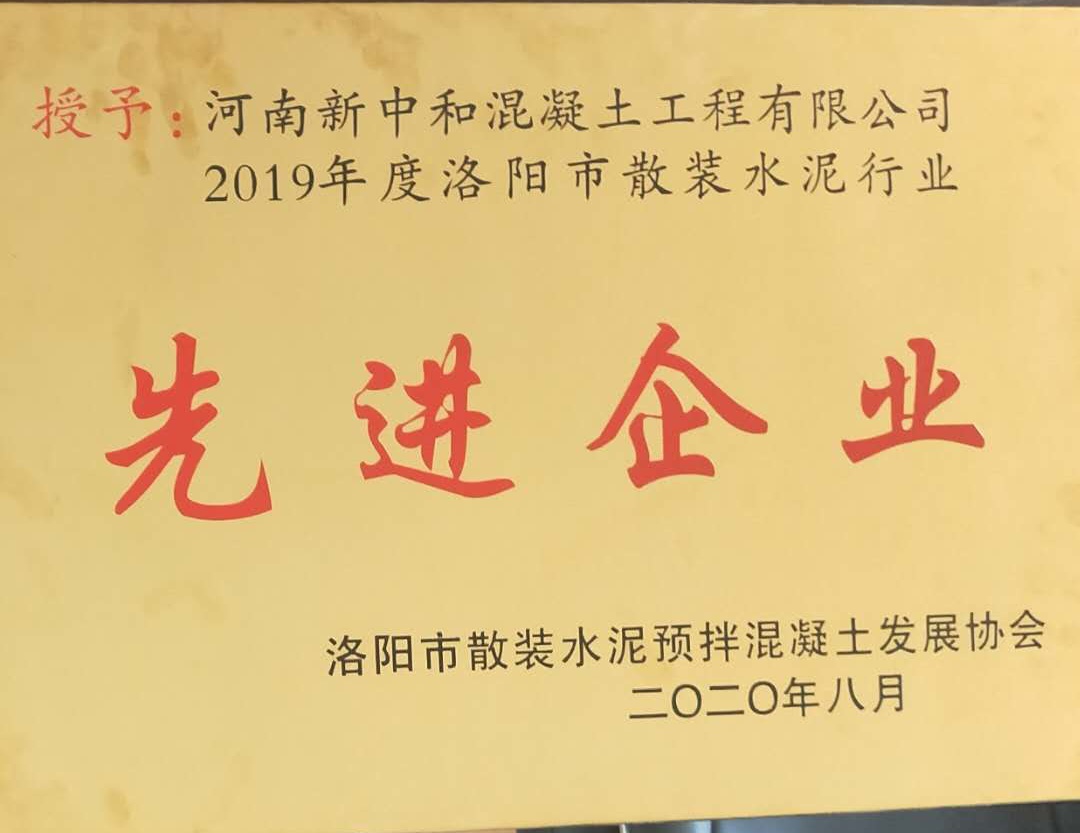 授予：河南新中和混凝土工程有限公司
2019年度洛阳市散装水泥行业
先进企业
洛阳市散装水泥预拌混凝土发展协会
二〇二〇年八月